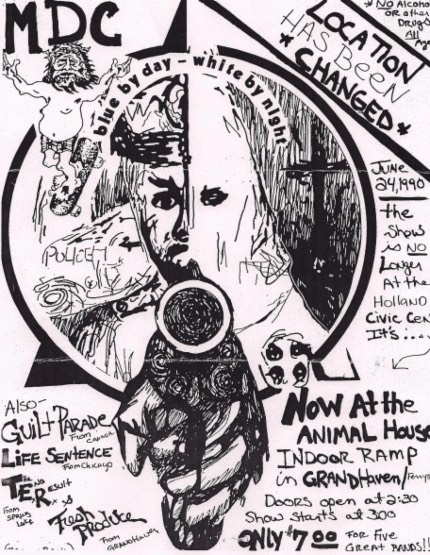 MDC
* NO Alcohol
OR other
Drugs
All
LOCATION
HAS BEEN
* CHANGED *
blue by day - white by night
POLICE
JUNE
24, 1990
the
Show
is NO
Longer
At the
HOLLAND
CIVIC CEN
It's....
ALSO-
GUILT PARADE
From CANADA
LIFE SENTENCE
From Chicago
THE END RESULT
From
SPRING
Lake
Fresh
PRODUCE
From GRAND HAVEN
NOW At the
ANIMAL House
INDOOR RAMP
in GRAND HAVEN/
Doors open at 2:30
Show starts at 3:00
ONLY $7.00 FOR Five
GREAT BANDS!!